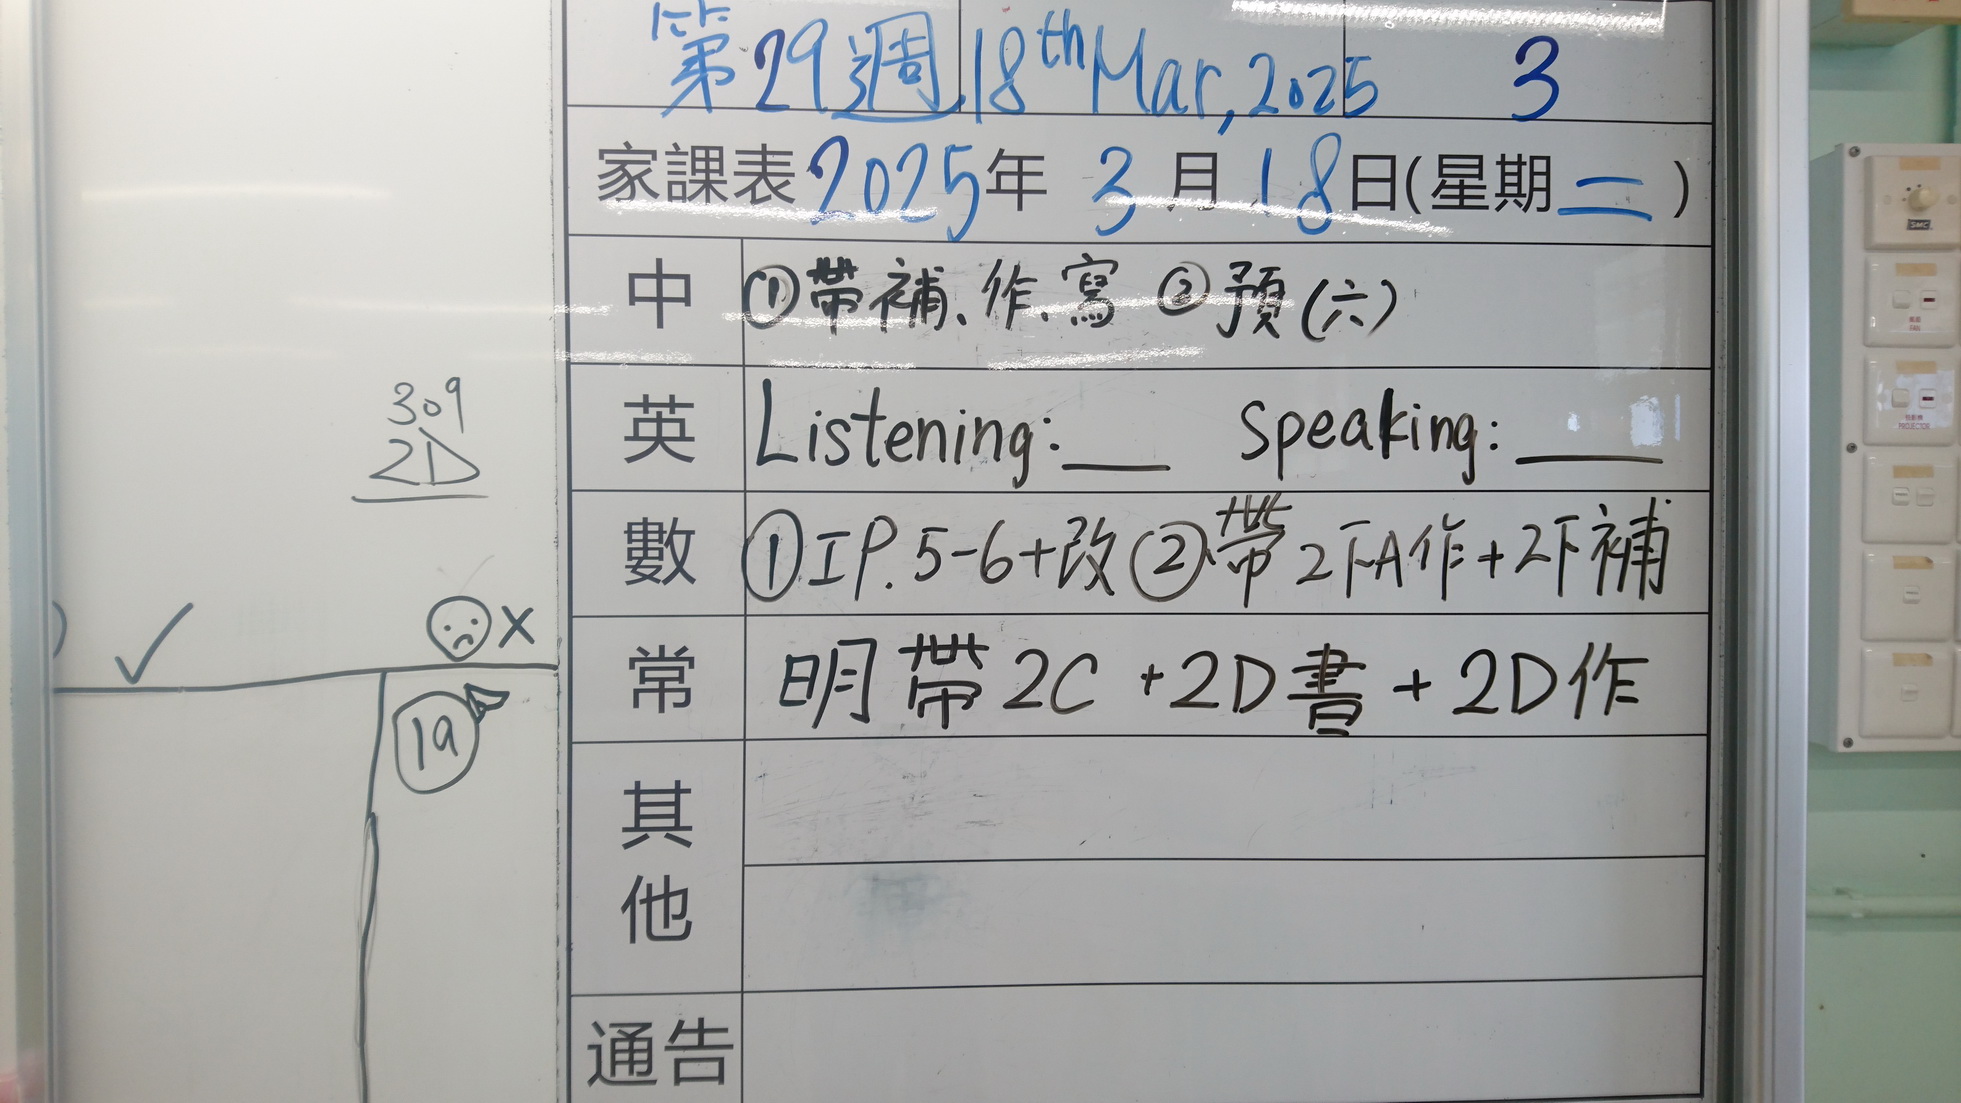 第29週 18th Mar, 2025 3
家課表 2025年 3月 18日(星期二)
中 ①帶補、作、寫 ②預(六)
英 Listening:___ Speaking:____
數 ①工P.5-6+改 ②帶2下A作+2下補
常 明帶2C+2D書+2D作
其他
通告
309
2D
✓ X
19
PROJECTOR